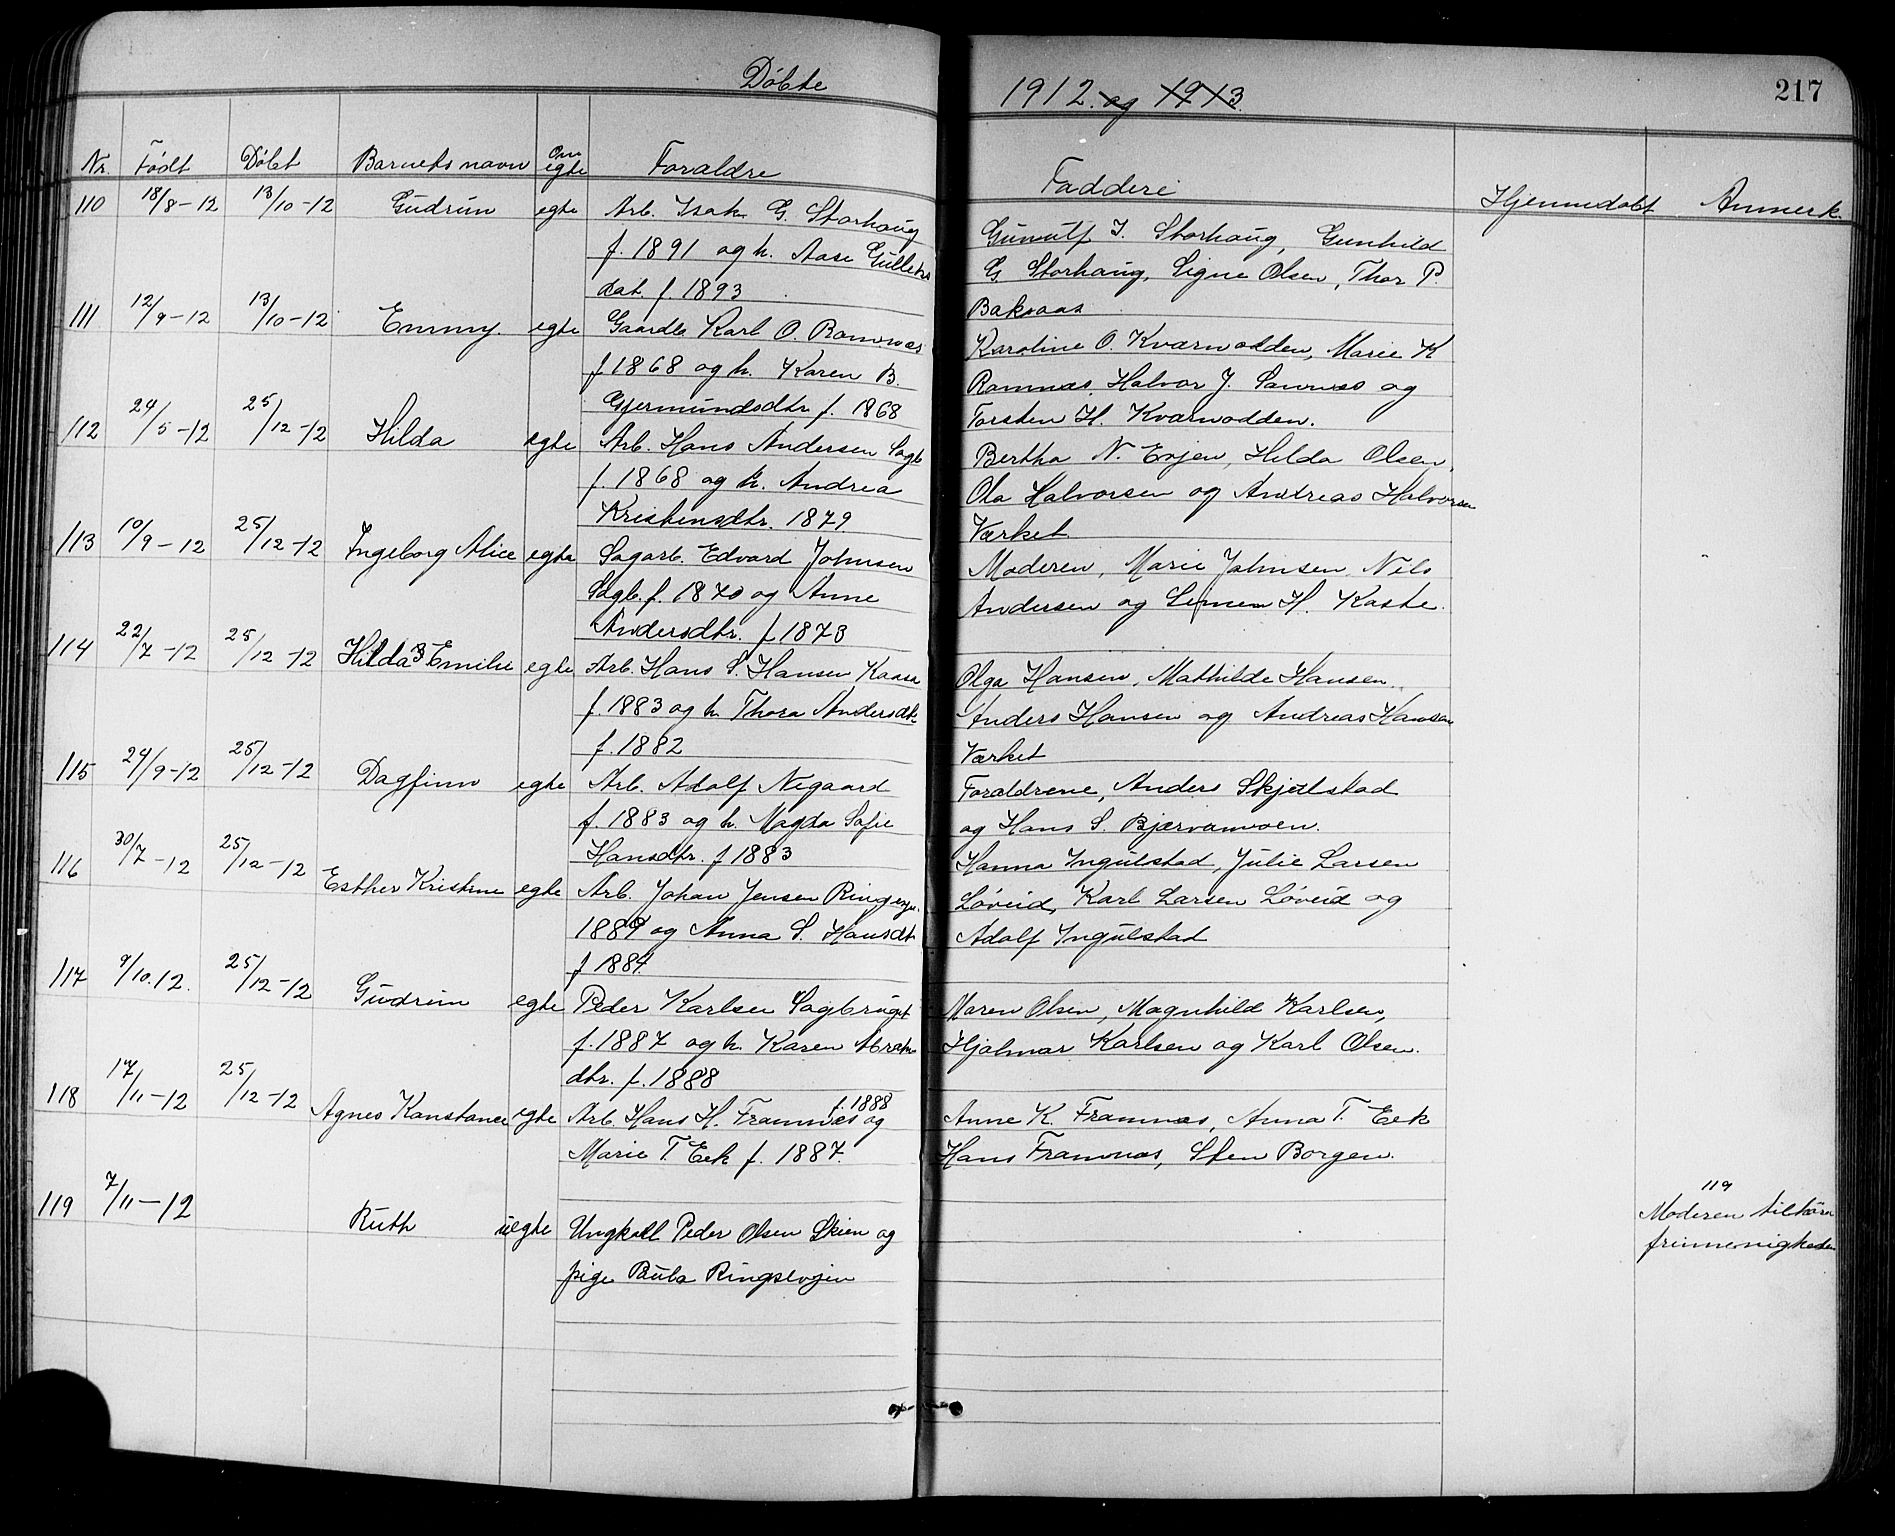 Døbte
1912. og 1913.
217
Nr. Født Døbt Barnets navn Om egte Forældre
Faddere Hjemmedøbt Anmerk.
110 18/8-12 13/10-12 Gudrun egte Arb. Isak G. Storhaug
f. 1891 og h. Aase Gulleks
dat. f. 1893
Gunnulf I. Storhaug, Gunhild
G. Storhaug, Signe Olsen, Thor P.
Baksaas
111 12/9-12 13/10-12 Emmy. egte Gaardb. Karl O. Ramnæs
f 1868 og h. Karen B.
Gjermundsdtr f. 1868
Karoline O. Kværnodden, Marie K
Ramnæs, Halvor J. Sannæs og
Torsten H. Kværnodden.
112 24/5-12 25/12-12 Hilda egte Arb. Hans Andersen Sagb
f. 1868 og h. Andrea
Kristensdtr. 1879
Bertha N. Evjen, Hilda Olsen,
Ola Halvorsen og Andreas Halvorsen
Værket
113 10/9-12 25/12-12 Ingeborg Alice egte Sagarb. Edvard Johnsen
Sagb. f. 1870 og Anne
Andersdtr. f 1873
Moderen, Marie Johnsen, Nils
Andersen og Simen H. Kaste.
114 22/7-12 25/12-12 Hilda Emilie egte Arb. Hans S. Hansen Kaasa
f. 1883 og h. Thora Andersdtr
f. 1882
Olga Hansen, Mathilde Hansen.
Anders Hansen og Andreas Hansen
Værket
115 24/9-12 25/12-12 Dagfinn egte Arb. Adolf Nigaard
f. 1883 og h. Magda Sofie
Hansdtr. f 1883
Forældrene, Anders Skjelstad
og Hans S. Bjærvamoen.
116 30/7-12 25/12-12 Esther Kristine egte Arb. Johan Jensen Ringsevj.
og Anna S. Hansdt
f 1884.
Hanna Ingulstad, Julie Larsen
Løveid, Karl Larsen Løveid og
Adolf Ingulstad
117 9/10.12. 25/12-12 Gudrun egte Peder Karlsen Sagbruget
f. 1887 og h. Karen Abrah
dtr. f. 1888
Maren Olsen, Magnhild Karlsen,
Hjalmar Karlsen og Karl Olsen.
118 17/11-12 25/12-12 Agnes Konstance egte Arb. Hans H. Framnæs f. 1888 og
Marie T. Eek f. 1887.
Anne K. Framnæs, Anna T. Eek
Hans Framnæs, Sten Borgen.
119 7/11-12 Ruth uegte Ungkall Peder Olsen Skien og
pige Bula Ringsevjen
119
Moderen tilhører
frimenigheden